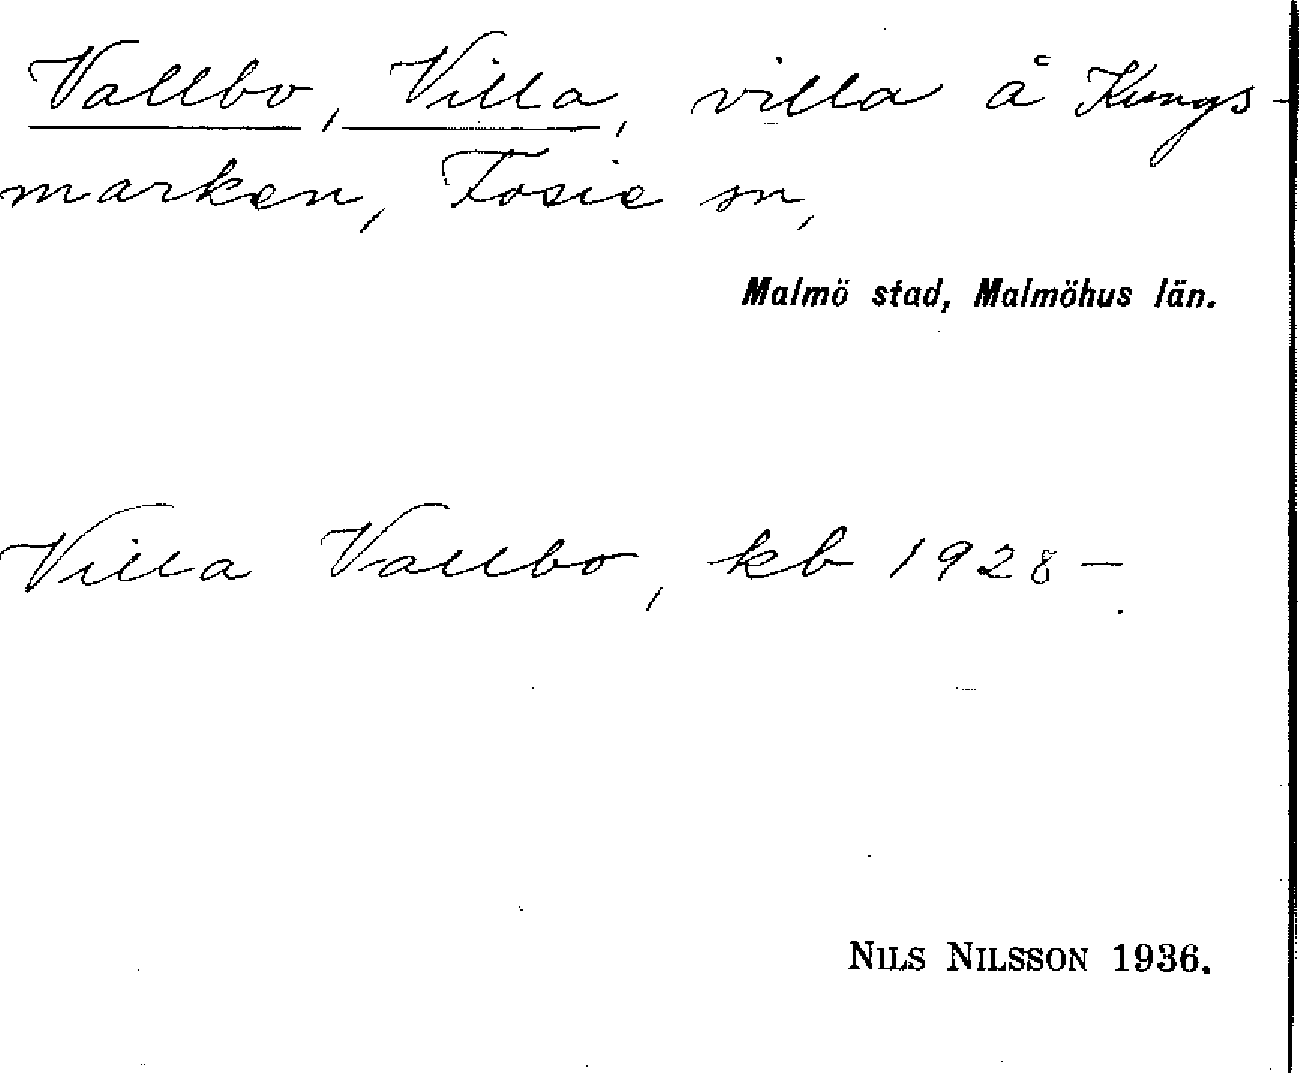 Vallbo, Villa, villa å Kungs-
marken, Fosie sn,
Malmö stad, Malmöhus län.
Villa Vallbo, kb 1928 –
NILS NILSSON 1936.